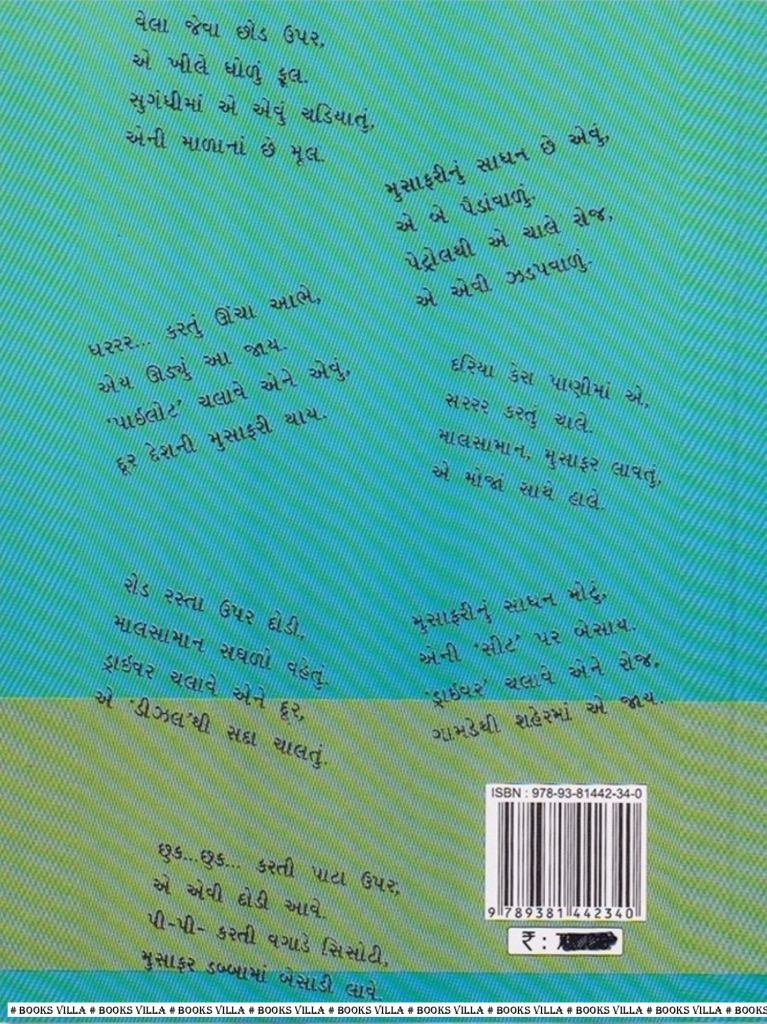 વેલા જેવા છોડ ઉપર,
એ ખીલે ધોળું ફૂલ.
સુગંધીમાં એ એવું ચડિયાતું,
એની માળાનાં છે મૂલ.
મુસાફરીનું સાધન છે એવું,
એ બે પૈડાંવાળું.
પેટ્રોલથી એ ચાલે રોજ,
એ એવી ઝડપવાળું.
ઘરરર... કરતું ઊંચા આભે,
એય ઊડ્યું આ જાય.
'પાઈલોટ' ચલાવે એને એવું,
દૂર દેશની મુસાફરી થાય.
દરિયા કેરા પાણીમાં એ,
સરરર કરતું ચાલે.
માલસામાન, મુસાફર લાવતું,
એ મોજાં સાથે હાલે.
રોડ રસ્તા ઉપર દોડી,
માલસામાન સઘળો વહેતું.
ડ્રાઈવર ચલાવે એને દૂર,
એ 'ડીઝલ'થી સદા ચાલતું.
મુસાફરીનું સાધન મોટું,
એની 'સીટ' પર બેસાય.
'ડ્રાઈવર' ચલાવે એને રોજ,
ગામડેથી શહેરમાં એ જાય.
છુક...છુક... કરતી પાટા ઉપર,
એ એવી દોડી આવે.
પી-પી- કરતી વગાડે સિસોટી,
મુસાફર ડબ્બામાં બેસાડી લાવે.
ISBN : 978-93-81442-34-0
9 789381 442340
₹ :
# BOOKS VILLA # BOOKS VILLA # BOOKS VILLA # BOOKS VILLA # BOOKS VILLA # BOOKS VILLA # BOOKS VILLA # BOOKS VILLA # BOOKS VILLA # BOOKS